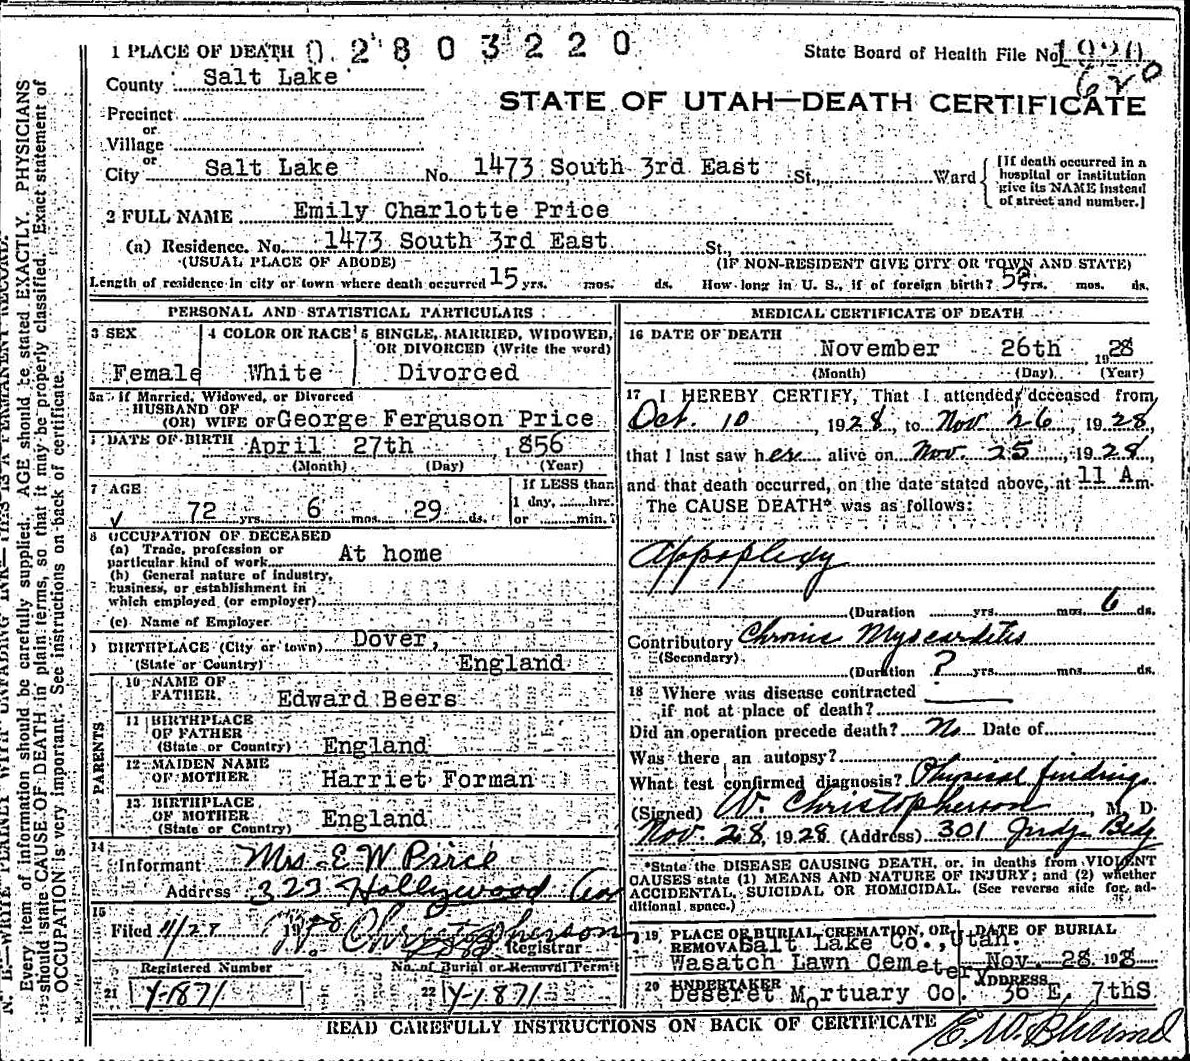 1 PLACE OF DEATH 02803220 State Board of Health File No. 1920
County Salt Lake 620
STATE OF UTAH—DEATH CERTIFICATE
Precinct
or
Village
or
City Salt Lake No. 1473 South 3rd East St., Ward
[If death occurred in a
hospital or institution
give its NAME instead
of street and number.]
2 FULL NAME Emily Charlotte Price
(a) Residence. No. 1473 South 3rd East St.,
(USUAL PLACE OF ABODE) (IF NON-RESIDENT GIVE CITY OR TOWN AND STATE)
Length of residence in city or town where death occurred 15 yrs. mos. ds. How long in U. S., if of foreign birth? yrs. mos. ds.
PERSONAL AND STATISTICAL PARTICULARS
3 SEX
Female
4 COLOR OR RACE
White
5 SINGLE, MARRIED, WIDOWED,
OR DIVORCED (Write the word)
Divorced
5a If Married, Widowed, or Divorced
HUSBAND OF
(OR) WIFE OF George Ferguson Price
DATE OF BIRTH April 27th 1856
(Month) (Day) (Year)
7 AGE
72 yrs. 6 mos. 29 ds.
If LESS than
1 day, hrs.
or min.?
8 OCCUPATION OF DECEASED
(a) Trade, profession or
particular kind of work At home
(b) General nature of industry,
business, or establishment in
which employed (or employer)
(c) Name of Employer
BIRTHPLACE (City or town) Dover,
(State or Country) England
PARENTS
10 NAME OF
FATHER Edward Beers
11 BIRTHPLACE
OF FATHER
(State or Country) England
12 MAIDEN NAME
OF MOTHER Harriet Forman
13 BIRTHPLACE
OF MOTHER
(State or Country) England
14
Informant Mrs E W Price
Address 322 Hollywood Ave
15
Filed 11/27 1928
Registrar
Registered Number
21 Y-1871
No. of Burial or Removal Permit
22 Y-1871
MEDICAL CERTIFICATE OF DEATH
16 DATE OF DEATH
November 26th 1928
(Month) (Day) (Year)
17 I HEREBY CERTIFY, That I attended deceased from
Oct. 10, 1928, to Nov 26, 1928,
that I last saw her alive on Nov. 25, 1928,
and that death occurred, on the date stated above, at 11 A m.
The CAUSE DEATH* was as follows:
Appoplexy
(Duration yrs. mos 6 ds.
Contributory Chronic Myocarditis
(Secondary)
(Duration ? yrs. mos. ds.
18 Where was disease contracted
if not at place of death?
Did an operation precede death? No Date of
Was there an autopsy?
What test confirmed diagnosis? Physical findings
(Signed) W. Christopherson, M. D.
Nov. 28, 1928 (Address) 301 Judge Bldg
*State the DISEASE CAUSING DEATH, or, in deaths from VIOLENT
CAUSES state (1) MEANS AND NATURE OF INJURY; and (2) whether
ACCIDENTAL, SUICIDAL OR HOMICIDAL. (See reverse side for ad-
ditional space.)
19 PLACE OF BURIAL, CREMATION, OR
REMOVAL Salt Lake Co., Utah.
Wasatch Lawn Cemetery
DATE OF BURIAL
Nov. 28 1928
20 UNDERTAKER
Deseret Mortuary Co.
ADDRESS
36 E. 7thS
READ CAREFULLY INSTRUCTIONS ON BACK OF CERTIFICATE
N. B.—WRITE PLAINLY WITH UNFADING INK—THIS IS A PERMANENT RECORD.
Every item of information should be carefully supplied. AGE should be stated EXACTLY. PHYSICIANS
should state CAUSE OF DEATH in plain terms, so that it may be properly classified. Exact statement of
OCCUPATION is very important. See instructions on back of certificate.